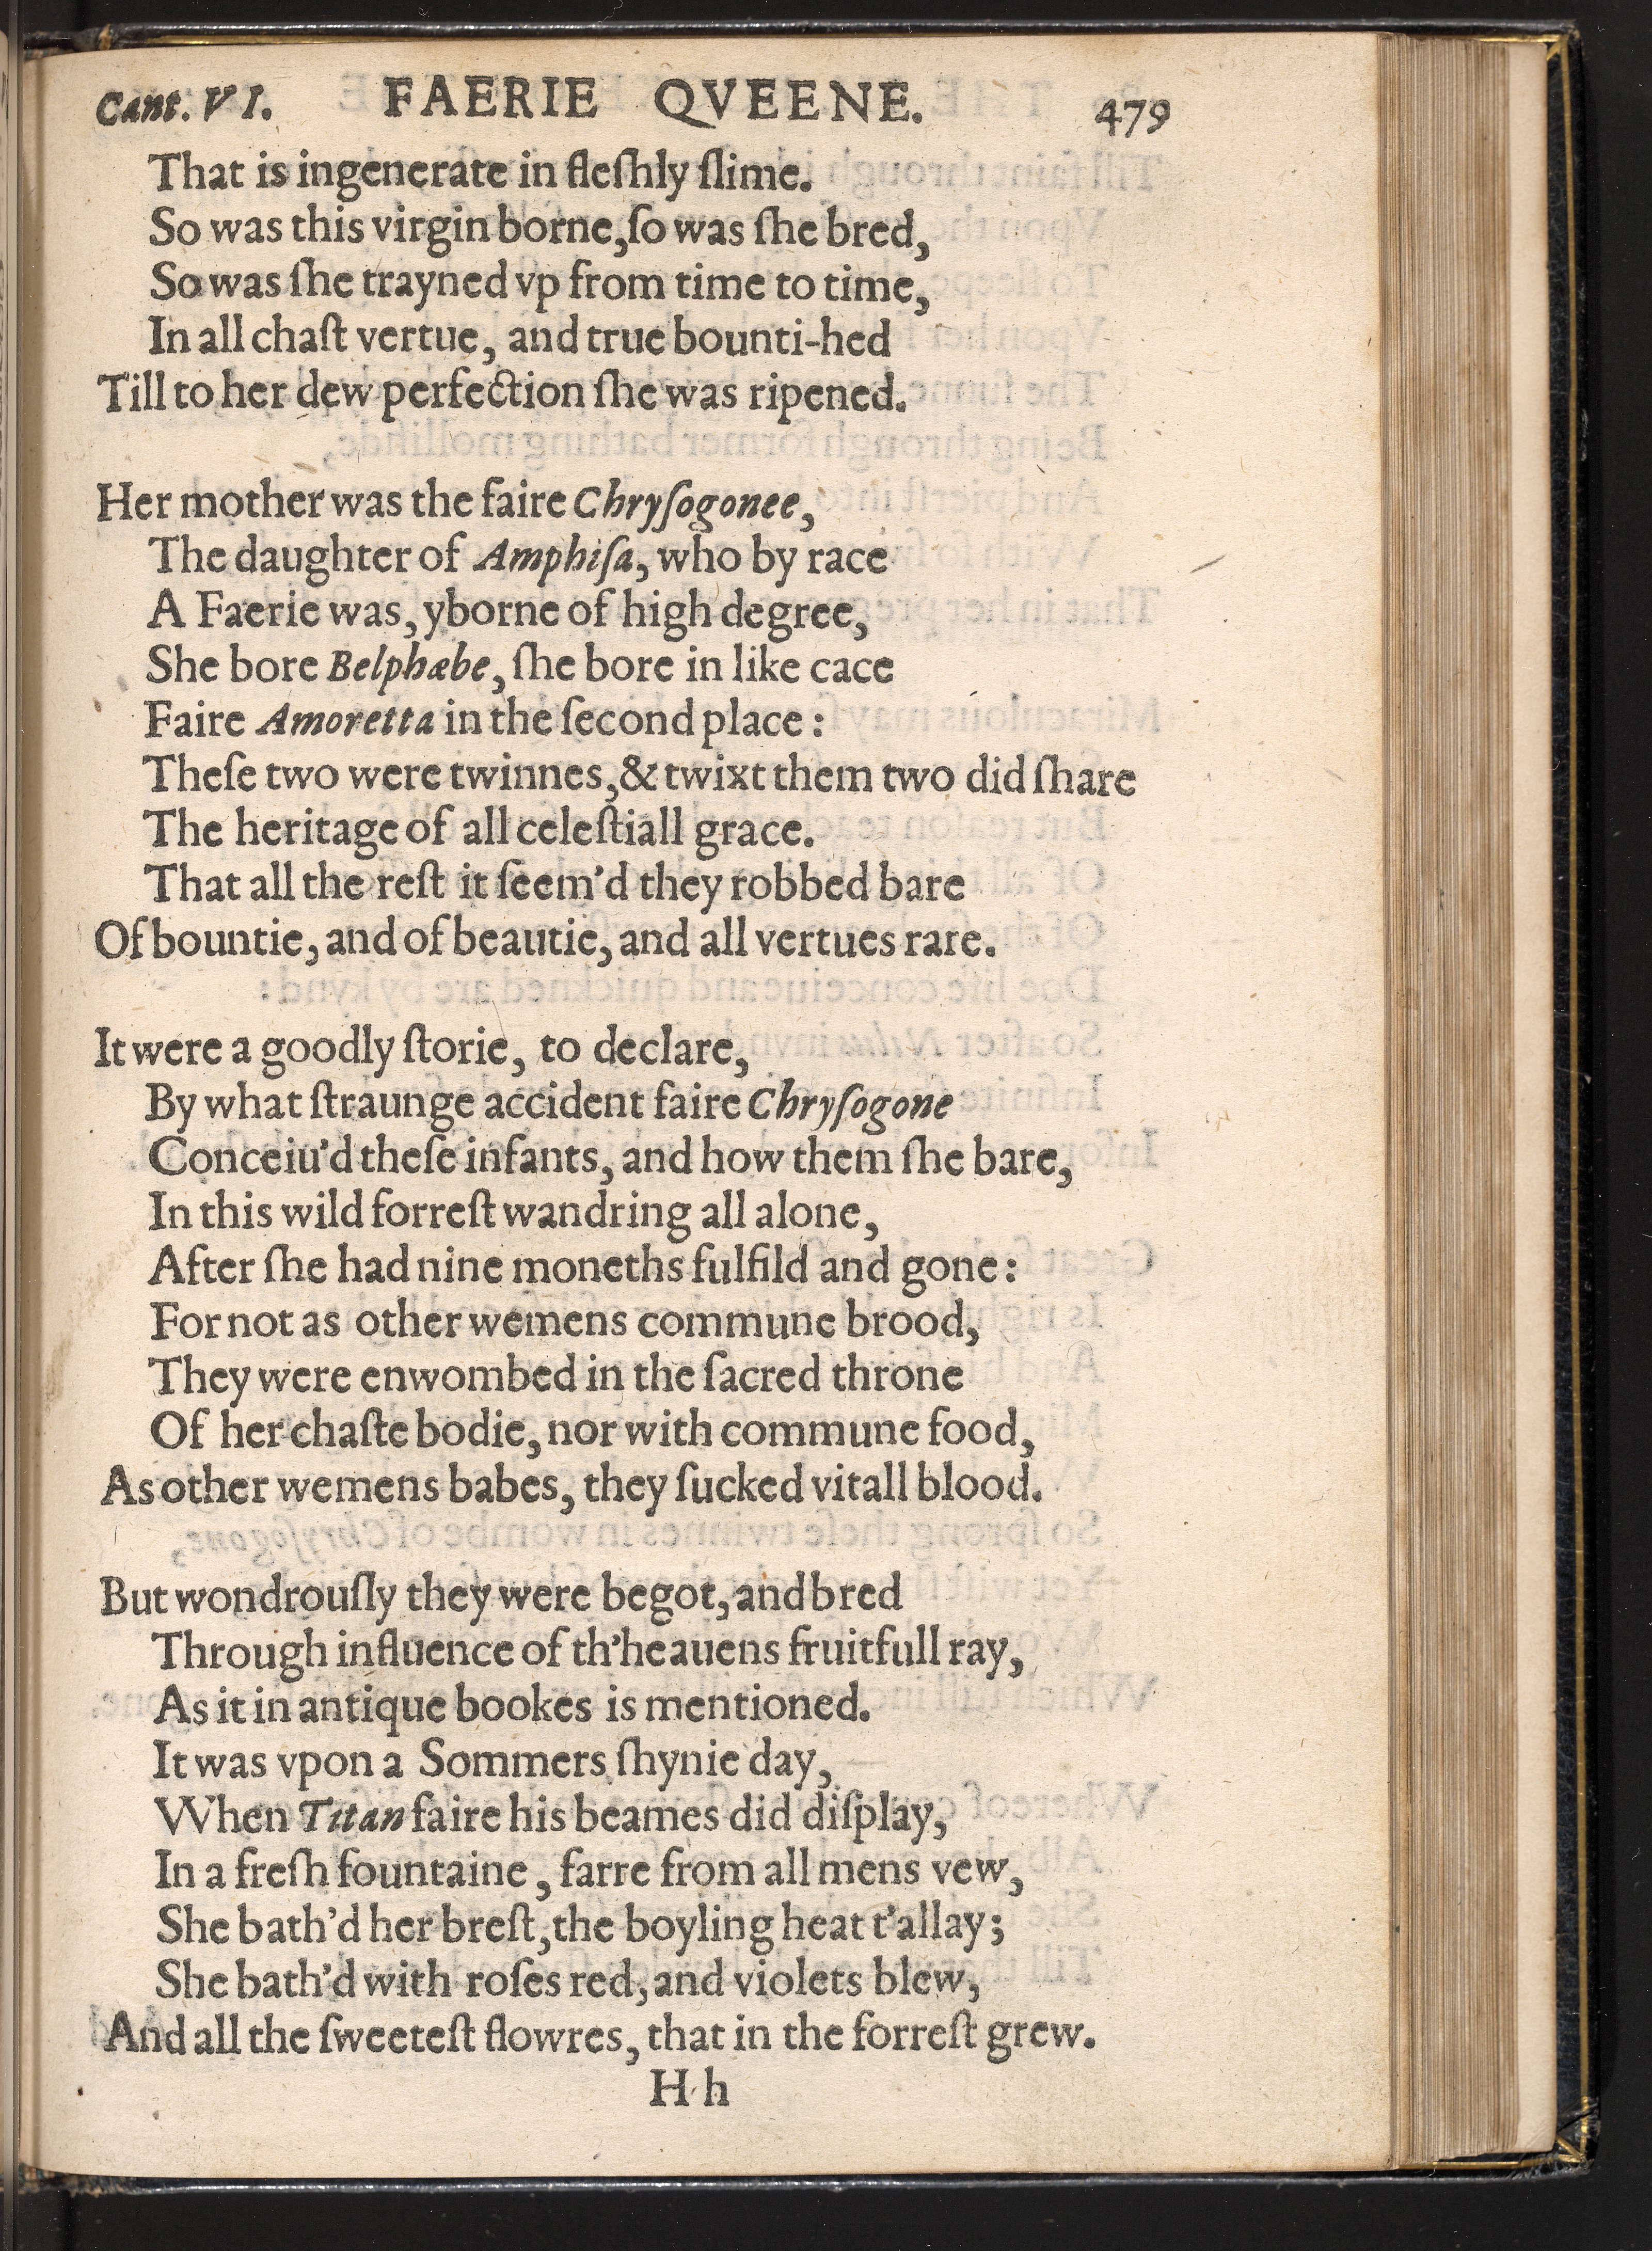 Cant. VI. FAERIE QVEENE. 479
That is ingenerate in fleſhly ſlime.
So was this virgin borne, ſo was ſhe bred,
So was ſhe trayned vp from time to time,
In all chaſt vertue, and true bounti-hed
Till to her dew perfection ſhe was ripened.
Her mother was the faire Chryſogonee,
The daughter of Amphiſa, who by race
A Faerie was, yborne of high degree,
She bore Belphæbe, ſhe bore in like cace
Faire Amoretta in the ſecond place:
Theſe two were twinnes, & twixt them two did ſhare
The heritage of all celeſtiall grace.
That all the reſt it ſeem'd they robbed bare
Of bountie, and of beautie, and all vertues rare.
It were a goodly ſtorie, to declare,
By what ſtraunge accident faire Chryſogone
Conceiu'd theſe infants, and how them ſhe bare,
In this wild forreſt wandring all alone,
After ſhe had nine moneths fulfild and gone:
For not as other wemens commune brood,
They were enwombed in the ſacred throne
Of her chaſte bodie, nor with commune food,
As other wemens babes, they ſucked vitall blood.
But wondrouſly they were begot, and bred
Through influence of th'heauens fruitfull ray,
As it in antique bookes is mentioned.
It was vpon a Sommers ſhynie day,
When Titan faire his beames did diſplay,
In a freſh fountaine, farre from all mens vew,
She bath'd her breſt, the boyling heat t'allay;
She bath'd with roſes red, and violets blew,
And all the ſweeteſt flowres, that in the forreſt grew.
H h